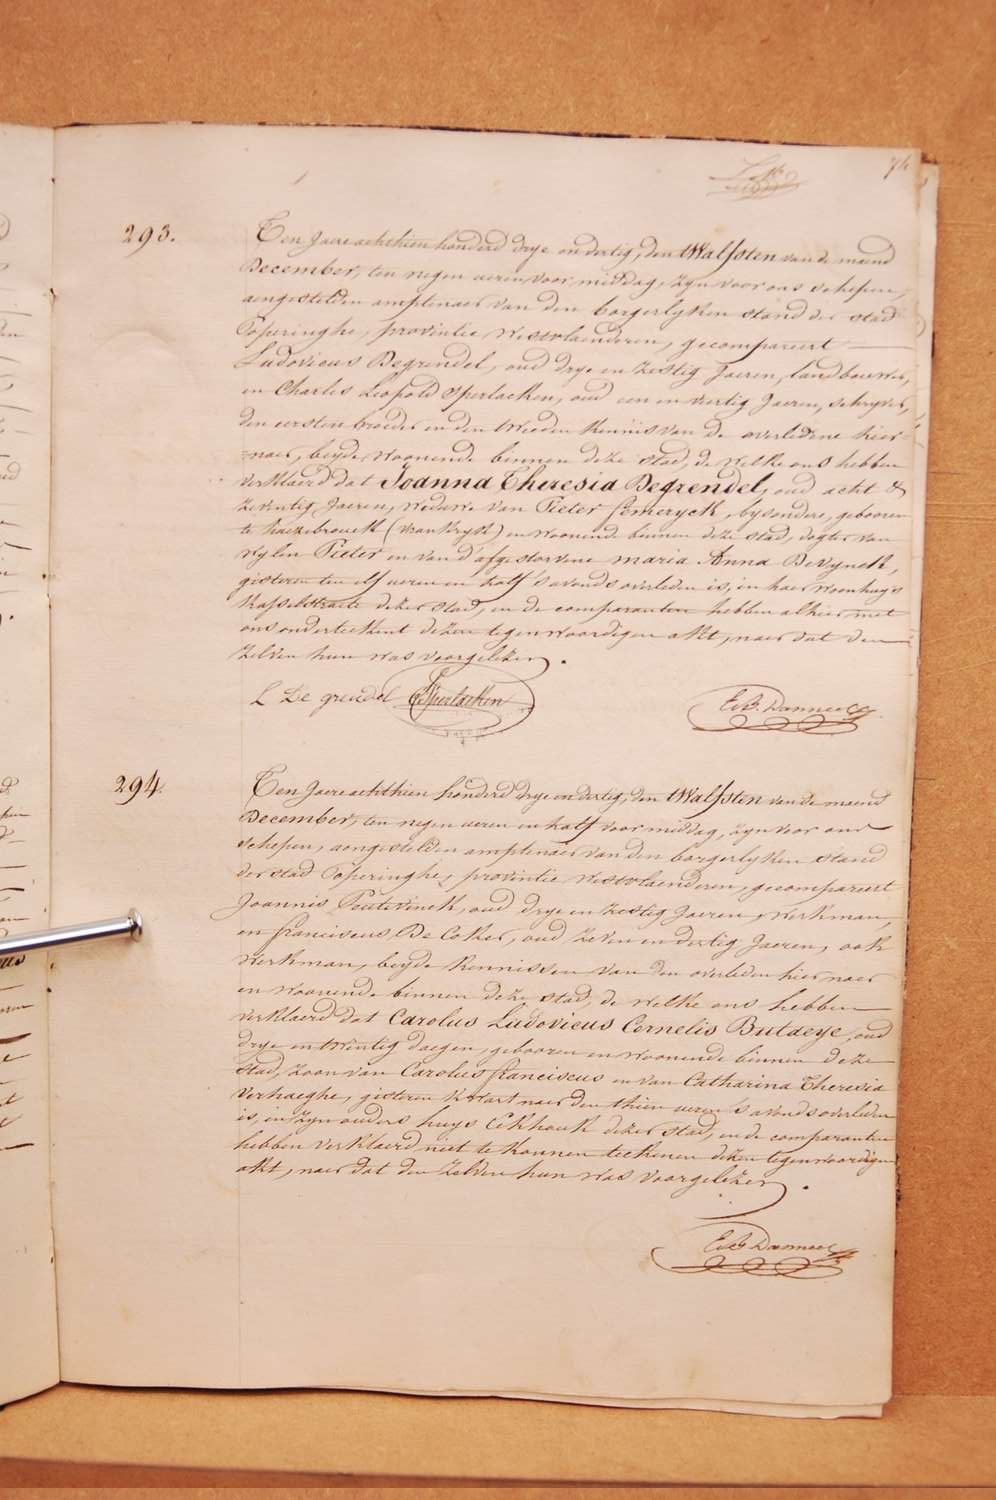 74
293.
Ten Jaere achthien honderd drye en dertig, den twalfsten van de maend
December, ten negen ueren voor middag, zyn voor ons schepen,
aengestelden amptenaer van den borgerlyken stand der stad
Poperinghe, provintie Westvlaenderen, gecompareert
Ludovicus Degrendel, oud drye en zestig Jaeren, landbouwer,
en Charles Leopold Sperlaeken, oud een en veertig Jaeren, schryver,
den eersten broeder en den tweeden kennis van de overledene hier
=naer, beyde woonende binnen deze stad, de welke ons hebben
verklaerd dat Joanna Theresia Degrendel, oud acht &
zeventig Jaeren, weduwe van Pieter Lemeryck, bysondere, gebooren
te haezebrouck (Vrankryk) en woonende binnen deze stad, dogter van
wylen Pieter en van d'afgestorvene maria Anna Devynck,
gisteren ten elf ueren en half s'avonds overleden is, in haer woonhuys
Kasselstraete dezer stad, en de comparanten hebben alhier met
ons onderteekent dezen tegenwoordigen akt, naer dat den
zelven hun was voorgelezen.
L De grendel Sperlaeken
294.
Ten Jaere achthien honderd drye en dertig, den twalfsten van de maend
December, ten negen ueren en half voor middag, zyn voor ons
schepen, aengestelden amptenaer van den borgerlyken stand
der stad Poperinghe, provintie Westvlaenderen, gecompareert
Joannis Poutevinck, oud drye en zestig Jaeren, werkman,
en franciscus De Coker, oud zeven en dertig Jaeren, ook
werkman, beyde kennissen van den overleden hier naer
en woonende binnen deze stad, de welke ons hebben
verklaerd dat Carolus Ludovicus Cornelis Butaeye, oud
drye en twintig daegen, gebooren en woonende binnen deze
stad, zoon van Carolus franciscus en van Catharina Theresia
Verhaeghe, gisteren kwart naer den thien ueren s'avonds overleden
is, in zyn ouders huys Ekhouk dezer stad, en de comparanten
hebben verklaerd niet te konnen teekenen dezen tegenwoordigen
akt, naer dat den zelven hun was voorgelezen.